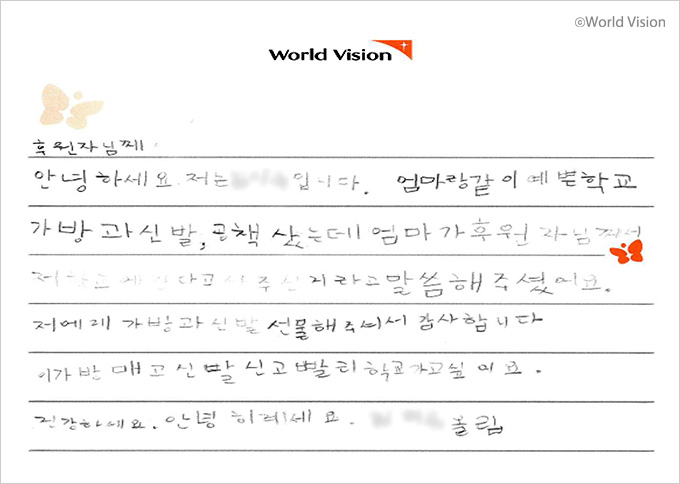 ©World Vision
World Vision
후원자님께
안녕하세요 저는 입니다. 엄마랑같이 예쁜학교
가방과신발, 공책 샀는데 엄마가후원자님께서
저학교에 간다고 사주신거라고말씀해주셨어요.
저에게 가방과신발 선물해주셔서 감사합니다
이가방 매고 신발신고빨리학교가고싶어요.
건강하세요. 안녕히계세요. 올림